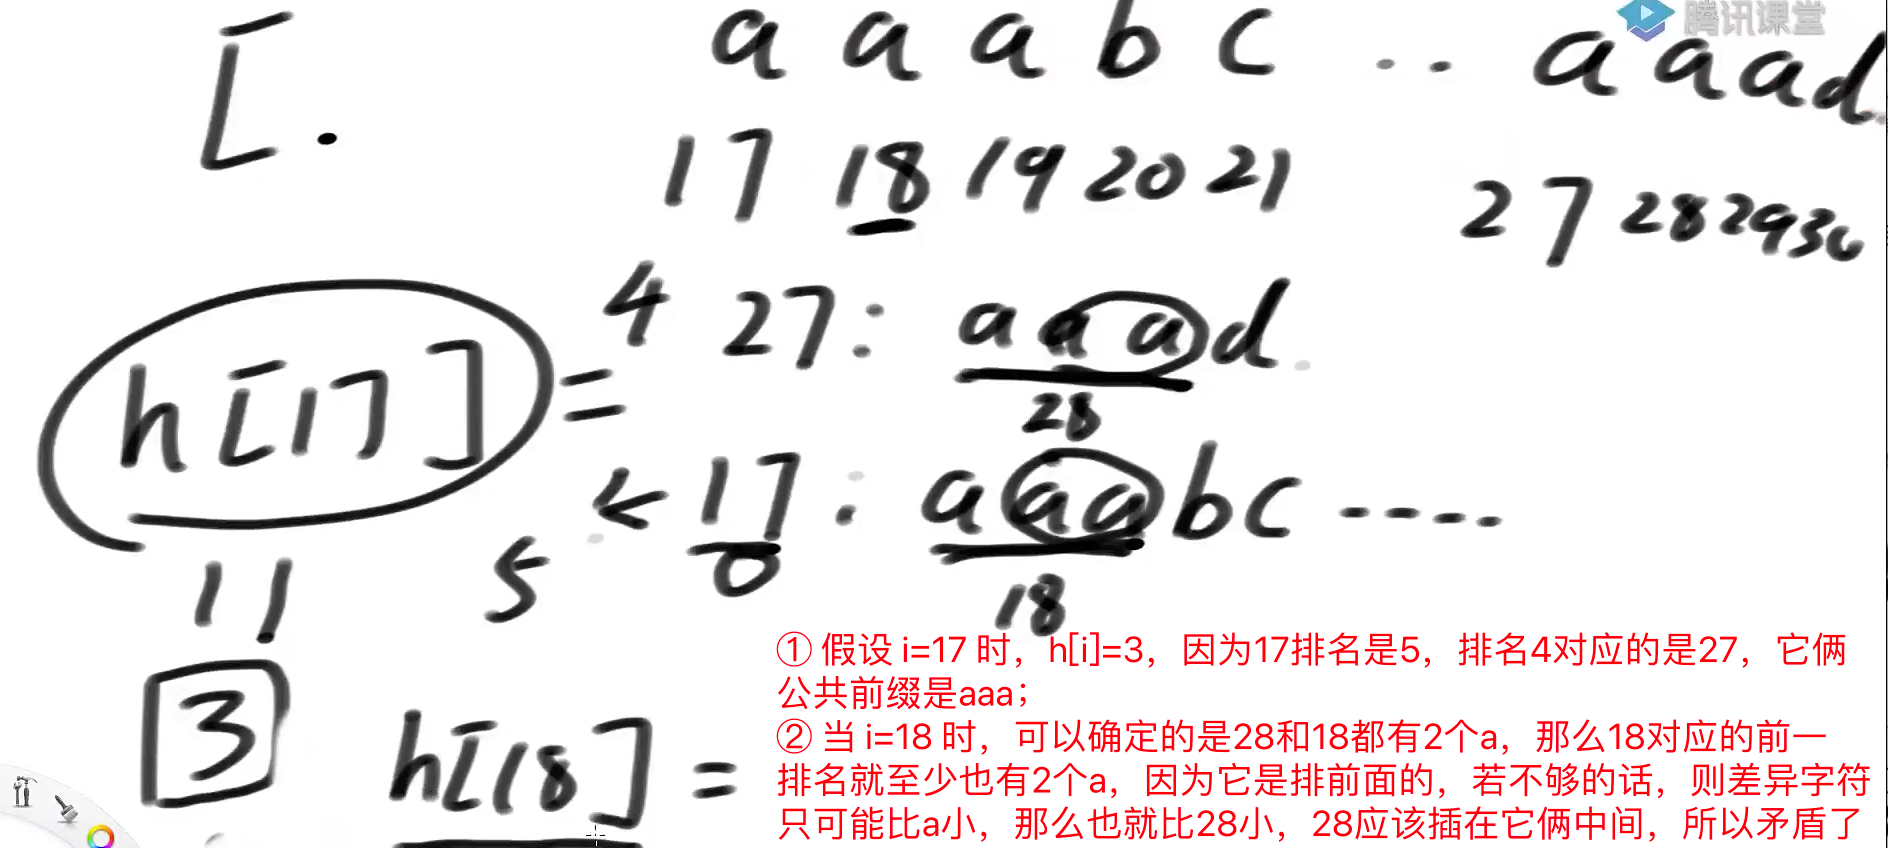 [. a a a b c .. a a a d. 腾讯课堂
17 18 19 20 21 27 28 29 30
4 27: a a a d.
28
h[17] =
5 ← 17: a a a b c ----
0 18
11
3
h[18] =
① 假设 i=17 时，h[i]=3，因为17排名是5，排名4对应的是27，它俩
公共前缀是aaa；
② 当 i=18 时，可以确定的是28和18都有2个a，那么18对应的前一
排名就至少也有2个a，因为它是排前面的，若不够的话，则差异字符
只可能比a小，那么也就比28小，28应该插在它俩中间，所以矛盾了